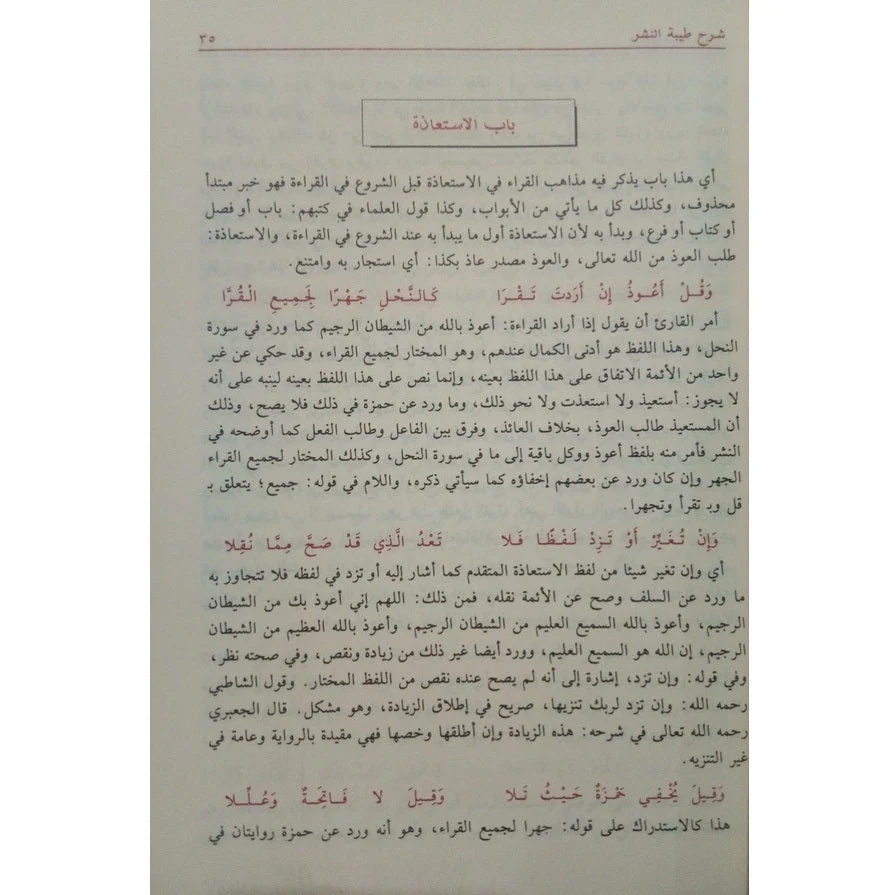 شرح طيبة النشر ٣٥
باب الاستعاذة
أي هذا باب يذكر فيه مذاهب القراء في الاستعاذة قبل الشروع في القراءة فهو خبر مبتدأ
محذوف، وكذلك كل ما يأتي من الأبواب، وكذا قول العلماء في كتبهم: باب أو فصل
أو كتاب أو فرع، وبدأ به لأن الاستعاذة أول ما يبدأ به عند الشروع في القراءة، والاستعاذة:
طلب العوذ من الله تعالى، والعوذ مصدر عاذ بكذا: أي استجار به وامتنع.
وَقُلْ أَعُـوذُ إِنْ أَرَدتَ تَـقْـرَا كَالنَّحْلِ جَهْرًا لِجَمِيعِ الْقُرَّا
أمر القارئ أن يقول إذا أراد القراءة: أعوذ بالله من الشيطان الرجيم كما ورد في سورة
النحل، وهذا اللفظ هو أدنى الكمال عندهم، وهو المختار لجميع القراء، وقد حكي عن غير
واحد من الأئمة الاتفاق على هذا اللفظ بعينه، وإنما نص على هذا اللفظ بعينه لينبه على أنه
لا يجوز: أستعيذ ولا استعذت ولا نحو ذلك، وما ورد عن حمزة في ذلك فلا يصح، وذلك
أن المستعيذ طالب العوذ، بخلاف العائذ، وفرق بين الفاعل وطالب الفعل كما أوضحه في
النشر فأمر منه بلفظ أعوذ ووكل باقية إلى ما في سورة النحل، وكذلك المختار لجميع القراء
الجهر وإن كان ورد عن بعضهم إخفاؤه كما سيأتي ذكره، واللام في قوله: جميع؛ يتعلق بـ
قل وبـ تقرأ وتجهرا.
وَإِنْ تُـغَـيِّرْ أَوْ تَـزِدْ لَـفْـظًا فَـلا تَعْدُ الَّذِي قَدْ صَحَّ مِمَّا نُقِلا
أي وإن تغير شيئا من لفظ الاستعاذة المتقدم كما أشار إليه أو تزد في لفظه فلا تتجاوز به
ما ورد عن السلف وصح عن الأئمة نقله، فمن ذلك: اللهم إني أعوذ بك من الشيطان
الرجيم، وأعوذ بالله السميع العليم من الشيطان الرجيم، وأعوذ بالله العظيم من الشيطان
الرجيم، إن الله هو السميع العليم، وورد أيضا غير ذلك من زيادة ونقص، وفي صحته نظر،
وفي قوله: وإن تزد، إشارة إلى أنه لم يصح عنده نقص من اللفظ المختار. وقول الشاطبي
رحمه الله: وإن تزد لربك تنزيها، صريح في إطلاق الزيادة، وهو مشكل. قال الجعبري
رحمه الله تعالى في شرحه: هذه الزيادة وإن أطلقها وخصها فهي مقيدة بالرواية وعامة في
غير التنزيه.
وَقِيلَ يُخْفِي حَمْزَةٌ حَيْثُ تَـلا وَقِيلَ لا فَـاتِحَةٌ وَعُـلِّـلا
هذا كالاستدراك على قوله: جهرا لجميع القراء، وهو أنه ورد عن حمزة روايتان في